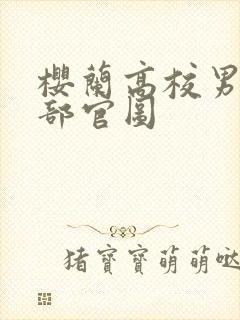 櫻蘭高校男
部官圖
猪寳寳萌萌哒